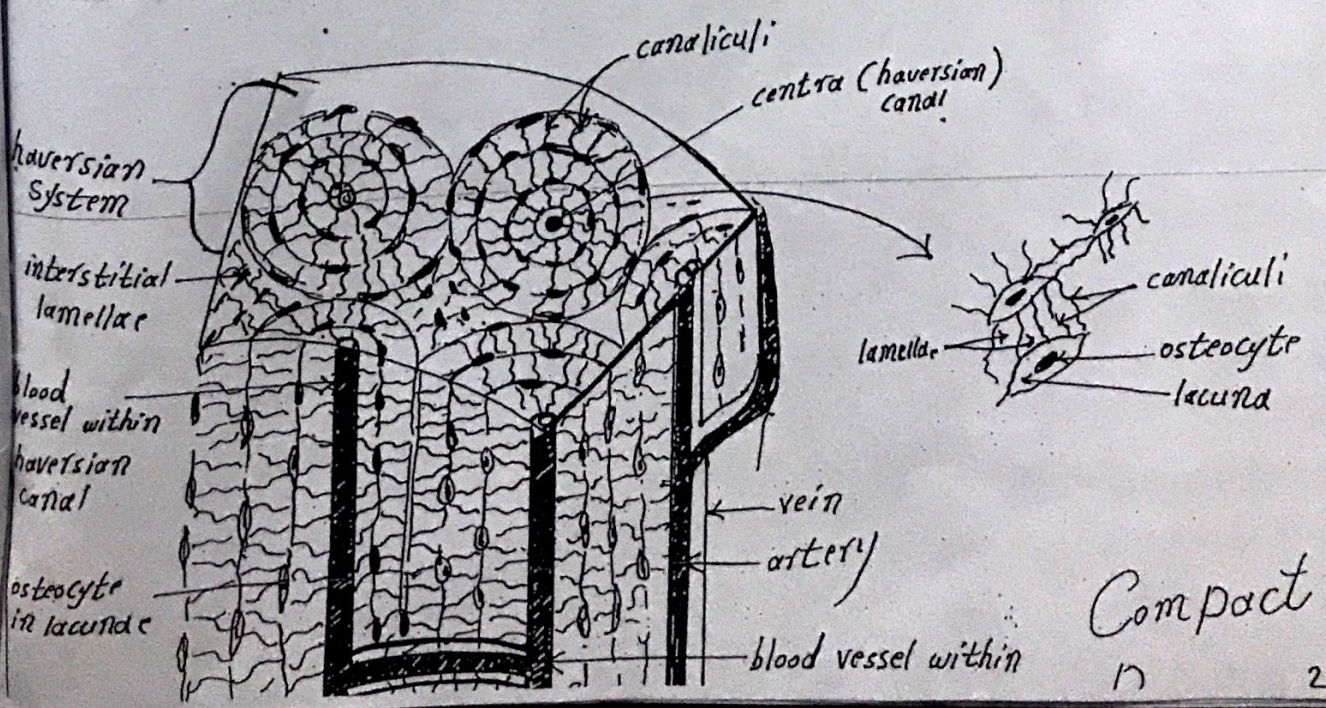 canaliculi
centra (haversian)
canal
haversian
system
interstitial
lamellae
blood
vessel within
haversian
canal
osteocyte
in lacunae
canaliculi
lamellae
osteocyte
lacuna
vein
artery
blood vessel within
Compact